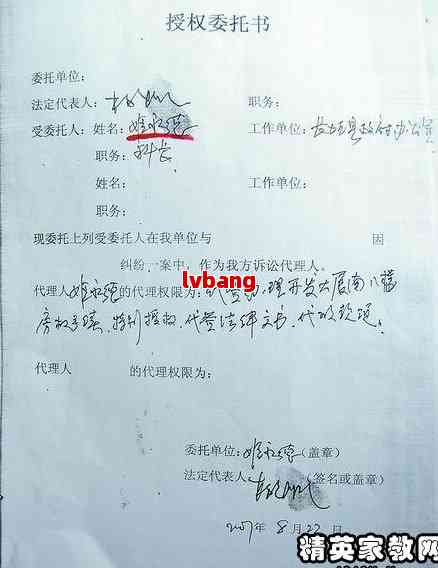 授权委托书
委托单位:
法定代表人: 职务:
受委托人: 姓名: 姬永德 工作单位: 长垣县政府办公室
职务: 科长
姓名: 工作单位:
职务:
现委托上列受委托人在我单位与 因
纠纷一案中, 作为我方诉讼代理人。
lvbang
代理人姬永德的代理权限为: 理开发大厦南八幢
房权手续、特别授权、代签法律文书、代收款项。
代理人 的代理权限为:
委托单位: 姬永德 (盖章)
法定代表人: (签名或盖章)
2007年 8 月 22 日
精英家教网